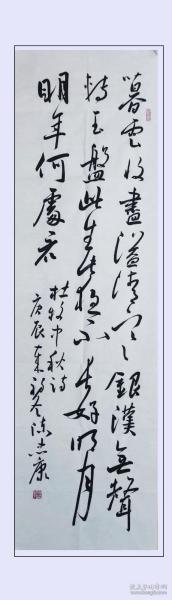 暮雲收盡溢清寒銀漢無聲
轉玉盤此生此夜不長好明月
明年何處看
杜牧中秋詩
庚辰陳志康